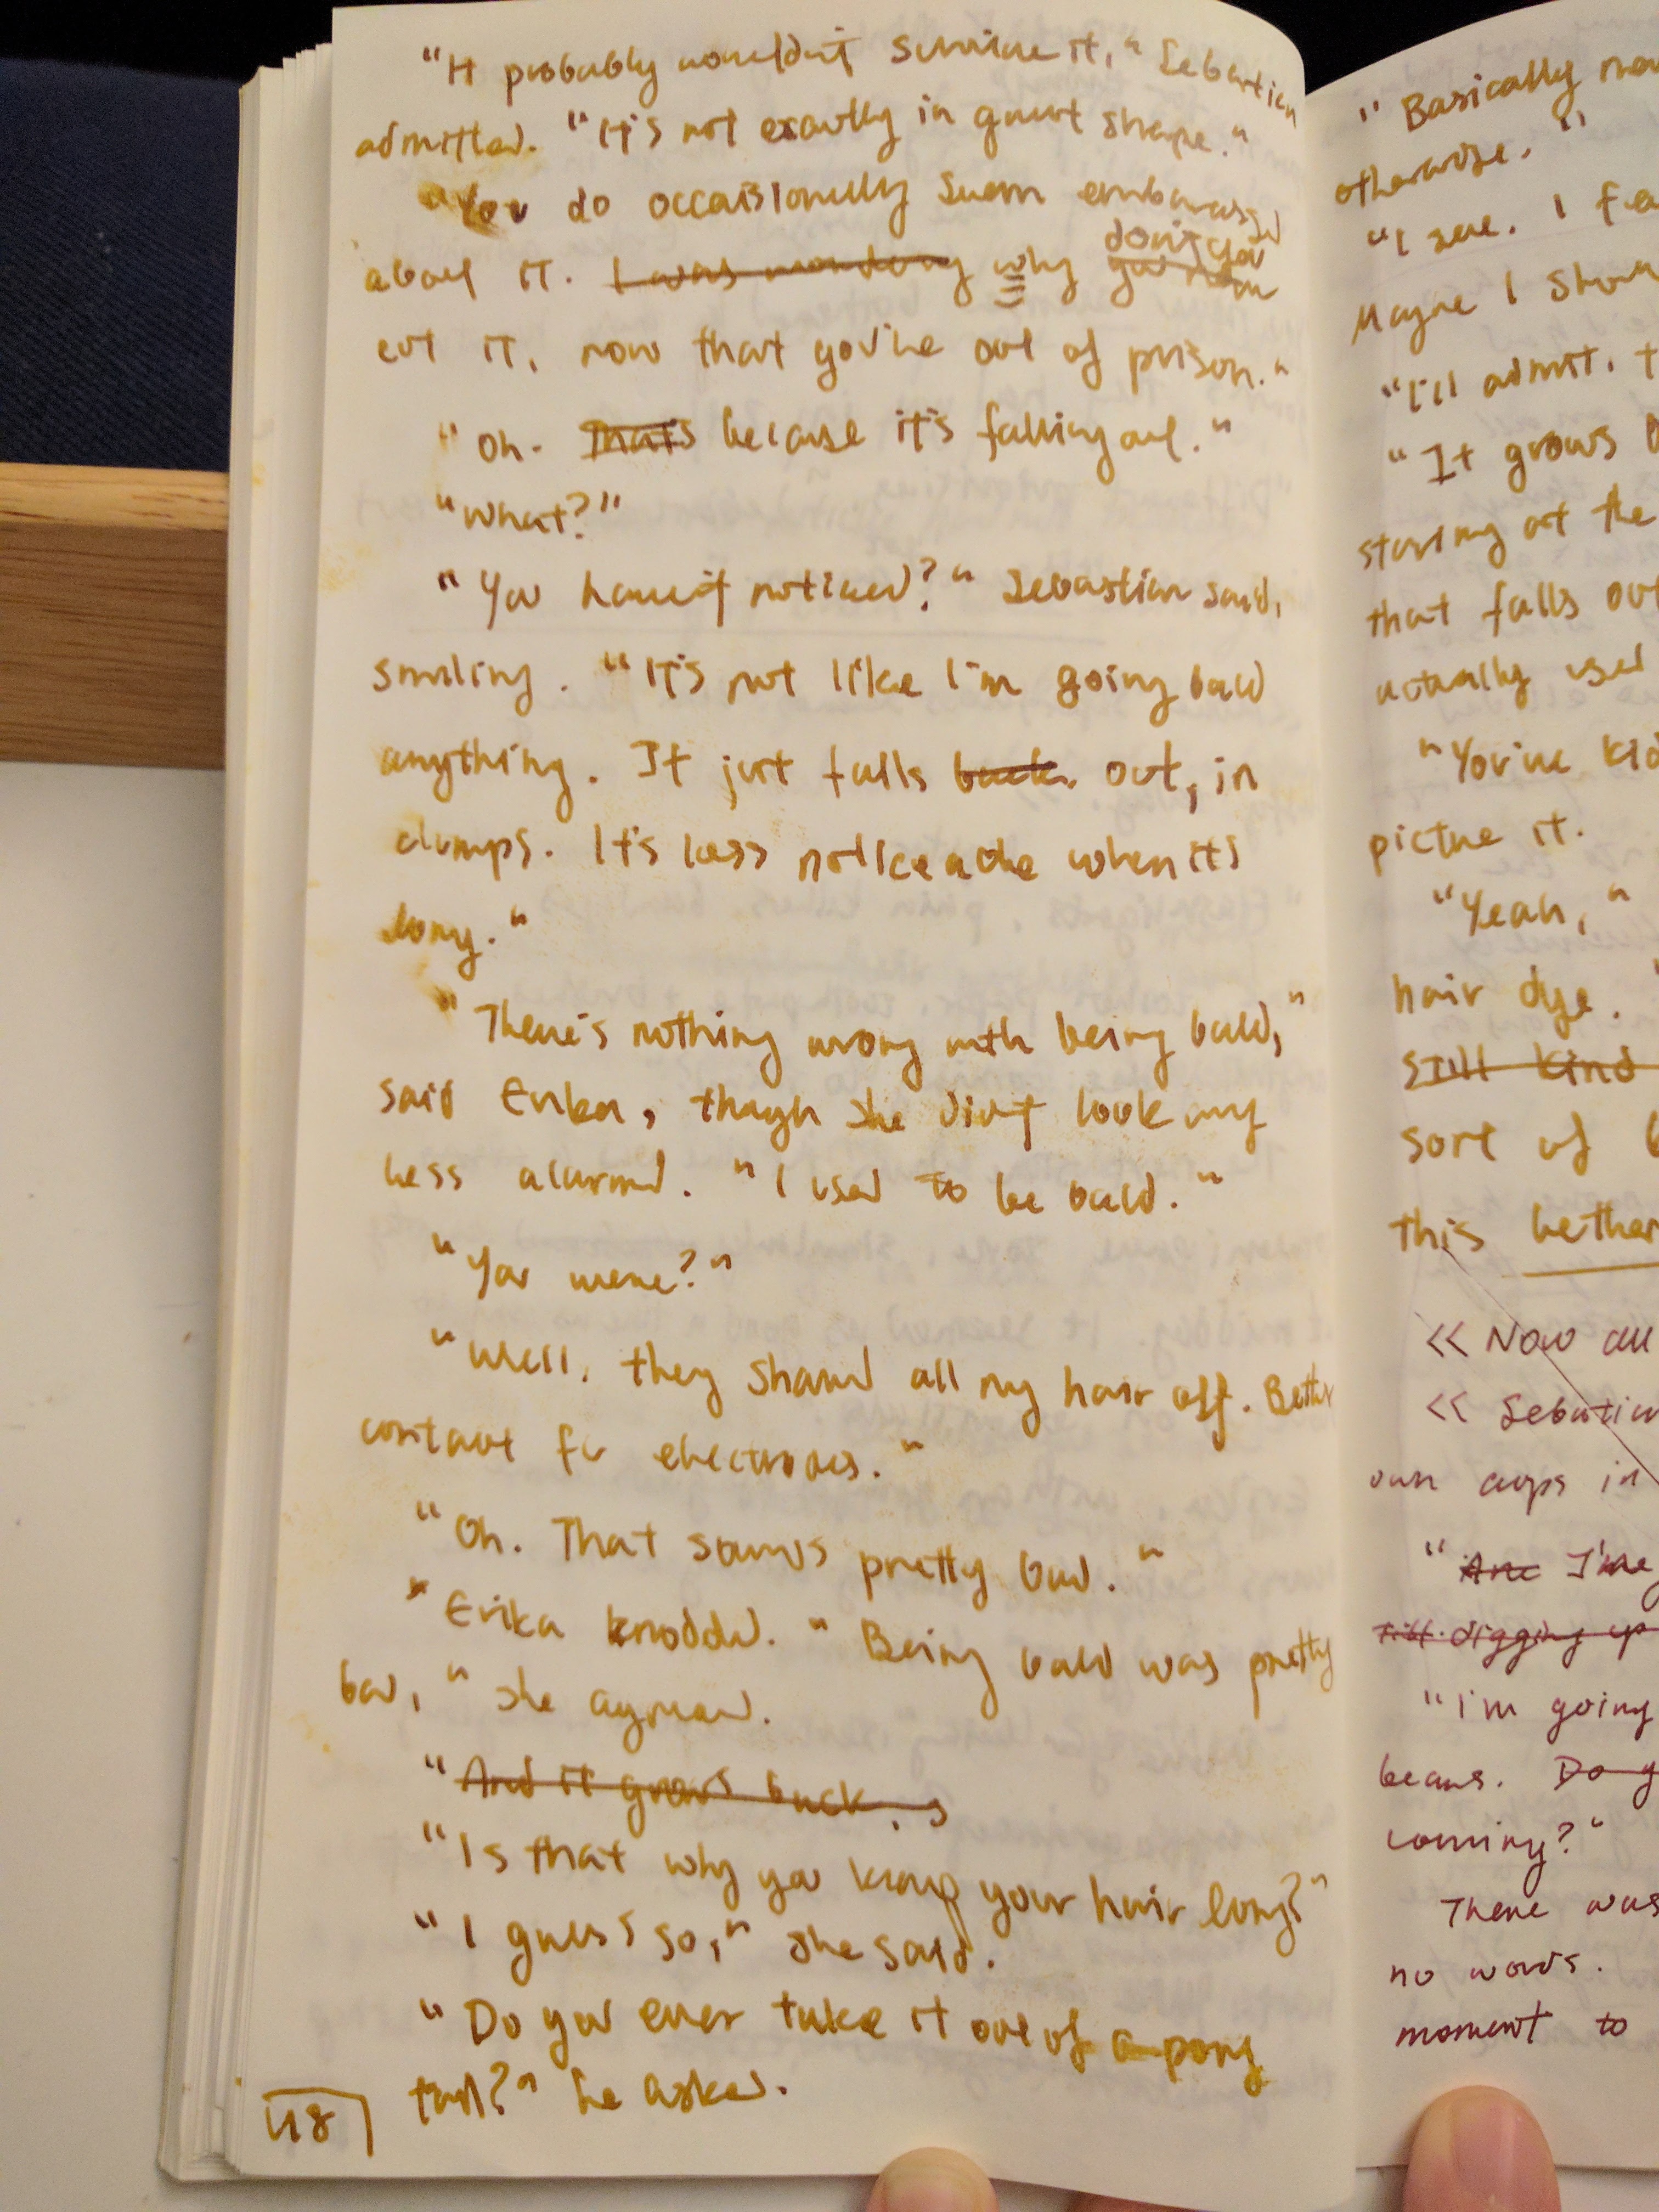 "It probably wouldn't survive it," Sebastian
admitted. "It's not exactly in great shape."
"You do occaisionally seem embarassed
about it. I was wondering why you don't you
cut it, now that you're out of prison."
"Oh. That's because it's falling out."
"What?"
"You haven't noticed?" Sebastian said,
smiling. "It's not like I'm going bald
anything. It just falls back out, in
clumps. It's less noticeable when it's
long."
"There's nothing wrong with being bald,"
said Erika, though she didn't look any
less alarmed. "I used to be bald."
"You were?"
"Well, they shaved all my hair off. Better
contact for electrodes."
"Oh. That sounds pretty bad."
"Erika knodded. "Being bald was pretty
bad," she agreed.
"And it grows back,
"Is that why you keep your hair long?"
"I guess so," she said.
"Do you ever take it out of a pony
tail?" he asked.
48
"Basically
otherwise."
"I see. I
Maybe I
"I'll admit,
"It grows
staring at the
that falls out
actually used
"You're
picture it.
"Yeah,"
hair dye.
still kind
sort of
this better
<< Now all
<< Sebastian
own cups in
"Are I'me
digging up
"I'm going
beans. Do
coming?"
There was
no words.
moment to